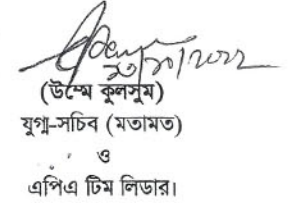 (উম্মে কুলসুম)
যুগ্ম-সচিব (মতামত)
ও
এপিএ টিম লিডার।